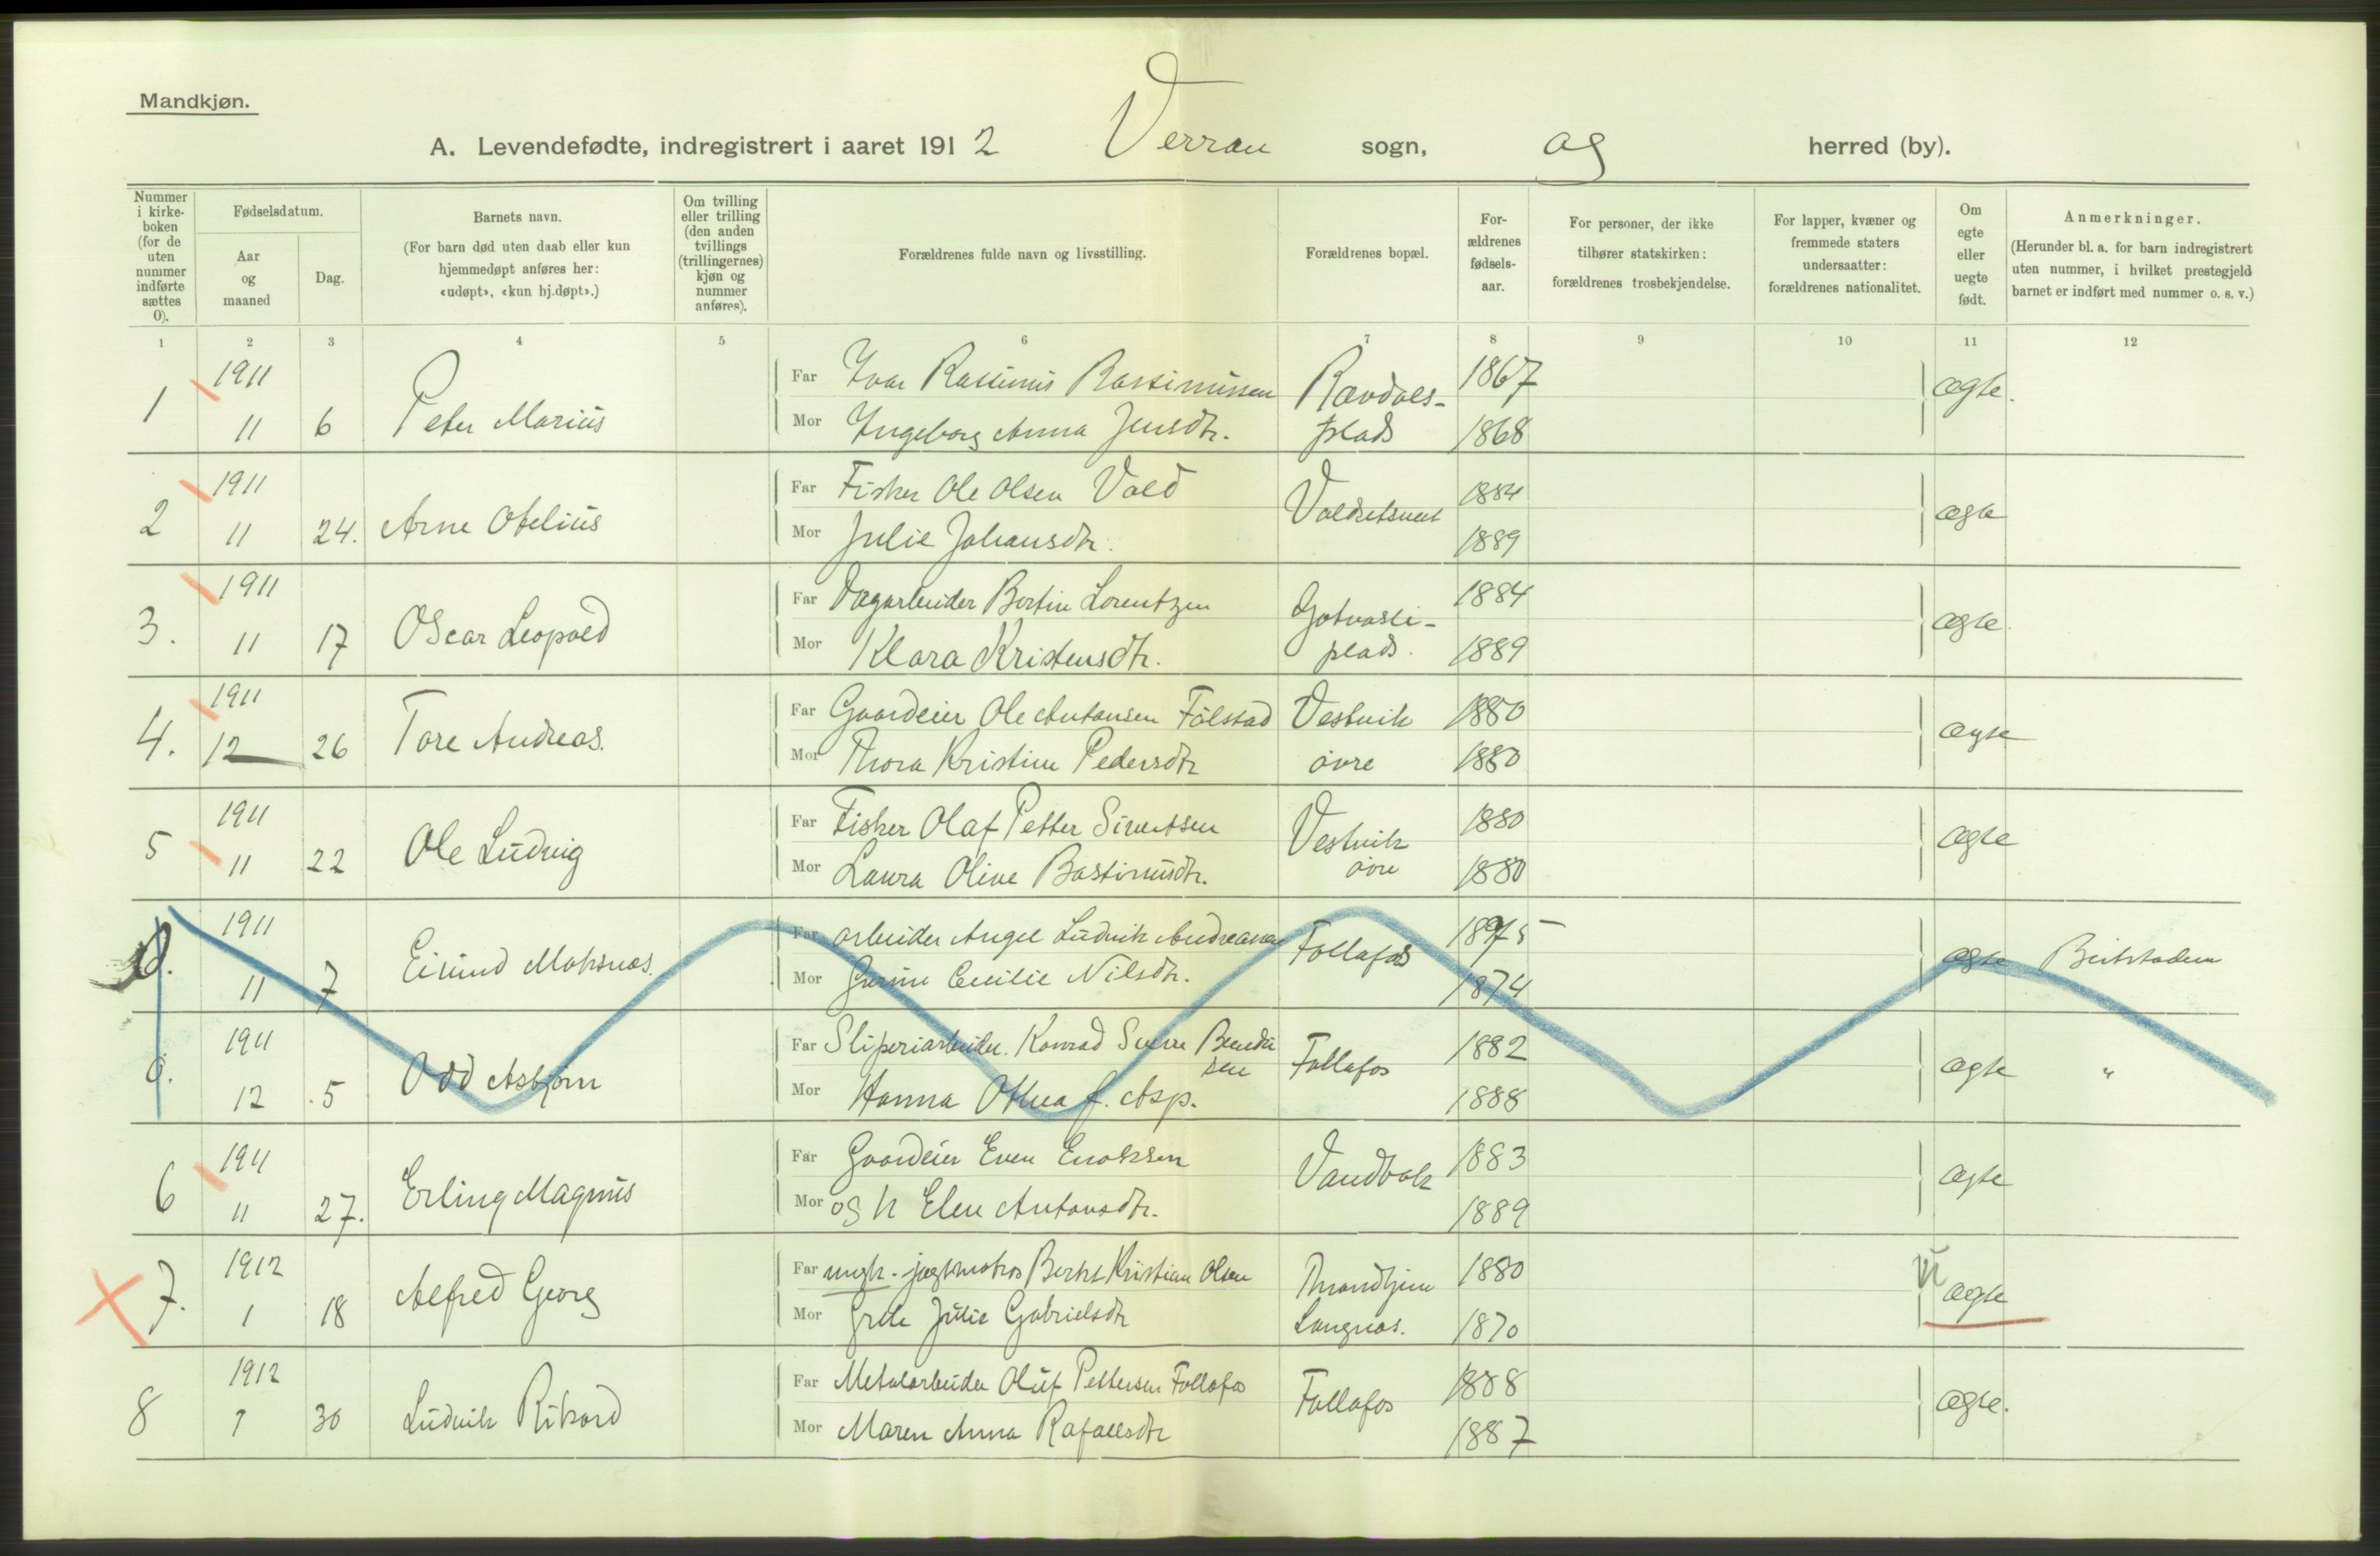 Mandkjøn.
A. Levendefødte, indregistrert i aaret 1912 Verran sogn, og herred (by).
Nummer i kirke- boken (for de uten nummer indførte sættes 0).
Fødselsdatum.
Aar og maaned
Dag.
Barnets navn.
(For barn død uten daab eller kun hjemmedøpt anføres her: «udøpt», «kun hj.døpt».)
Om tvilling eller trilling (den anden tvillings (trillingernes) kjøn og nummer anføres).
Forældrenes fulde navn og livsstilling.
Forældrenes bopæl.
For- ældrenes fødsels- aar.
For personer, der ikke tilhører statskirken: forældrenes trosbekjendelse.
For lapper, kvæner og fremmede staters undersaatter: forældrenes nationalitet.
Om egte eller uegte født.
Anmerkninger.
(Herunder bl. a. for barn indregistrert uten nummer, i hvilket prestegjeld barnet er indført med nummer o. s. v.)
1 2 3 4 5 6 7 8 9 10 11 12
1911 Far Ivar Rasmus 1867
1 11 6 Peter Marius ægte.
Mor Ingeborg Anna Jensdtr. plads 1868
1911 Far Fisker Ole Olsen Vold 1884
2 11 24. Arne Otelius ægte
Mor Julie Johansdtr. 1889
1911 Far Bertin Lorentzen 1884
3. 11 17 Oscar Leopold ægte
Mor Klara Kristensdtr. plads. 1889
1911 Far Gaardeier Ole Antonsen Folstad Vestvik 1880
4. 12 26 Tore Andreas. ægte
Mor Thora Kristine Pedersdtr øvre 1880
1911 Far Fisker Olaf Petter Sivertsen Vestvik 1880
5 11 22 Ole Ludvig ægte
Mor Laura Olive øvre 1880
1911 Far arbeider Ludvik Follafos 1875
0. 11 7 ægte Beitstaden
Mor Cecilie Nilsdtr. 1874
1911 Far Sliperiarbeider. Konrad Follafos 1882
0. 12 5 Odd Asbjørn ægte "
Mor Hanna Othea f. Asp. 1888
1911 Far Gaardeier Even Enoksen 1883
6 11 27. Erling Magnus ægte
Mor og h Elen Antonsdtr. 1889
1912 Far ungk. jagtmatros Kristian Olsen Trondhjem 1880
7. 1 18 Alfred Georg u ægte
Mor Grete Julie Gabrielsdtr Langnes. 1870
1912 Far Metalarbeider Oluf Pettersen Follafos Follafos 1888
8 1 30 Ludvik Rikard ægte.
Mor Maren Anna Rafaelsdtr 1887